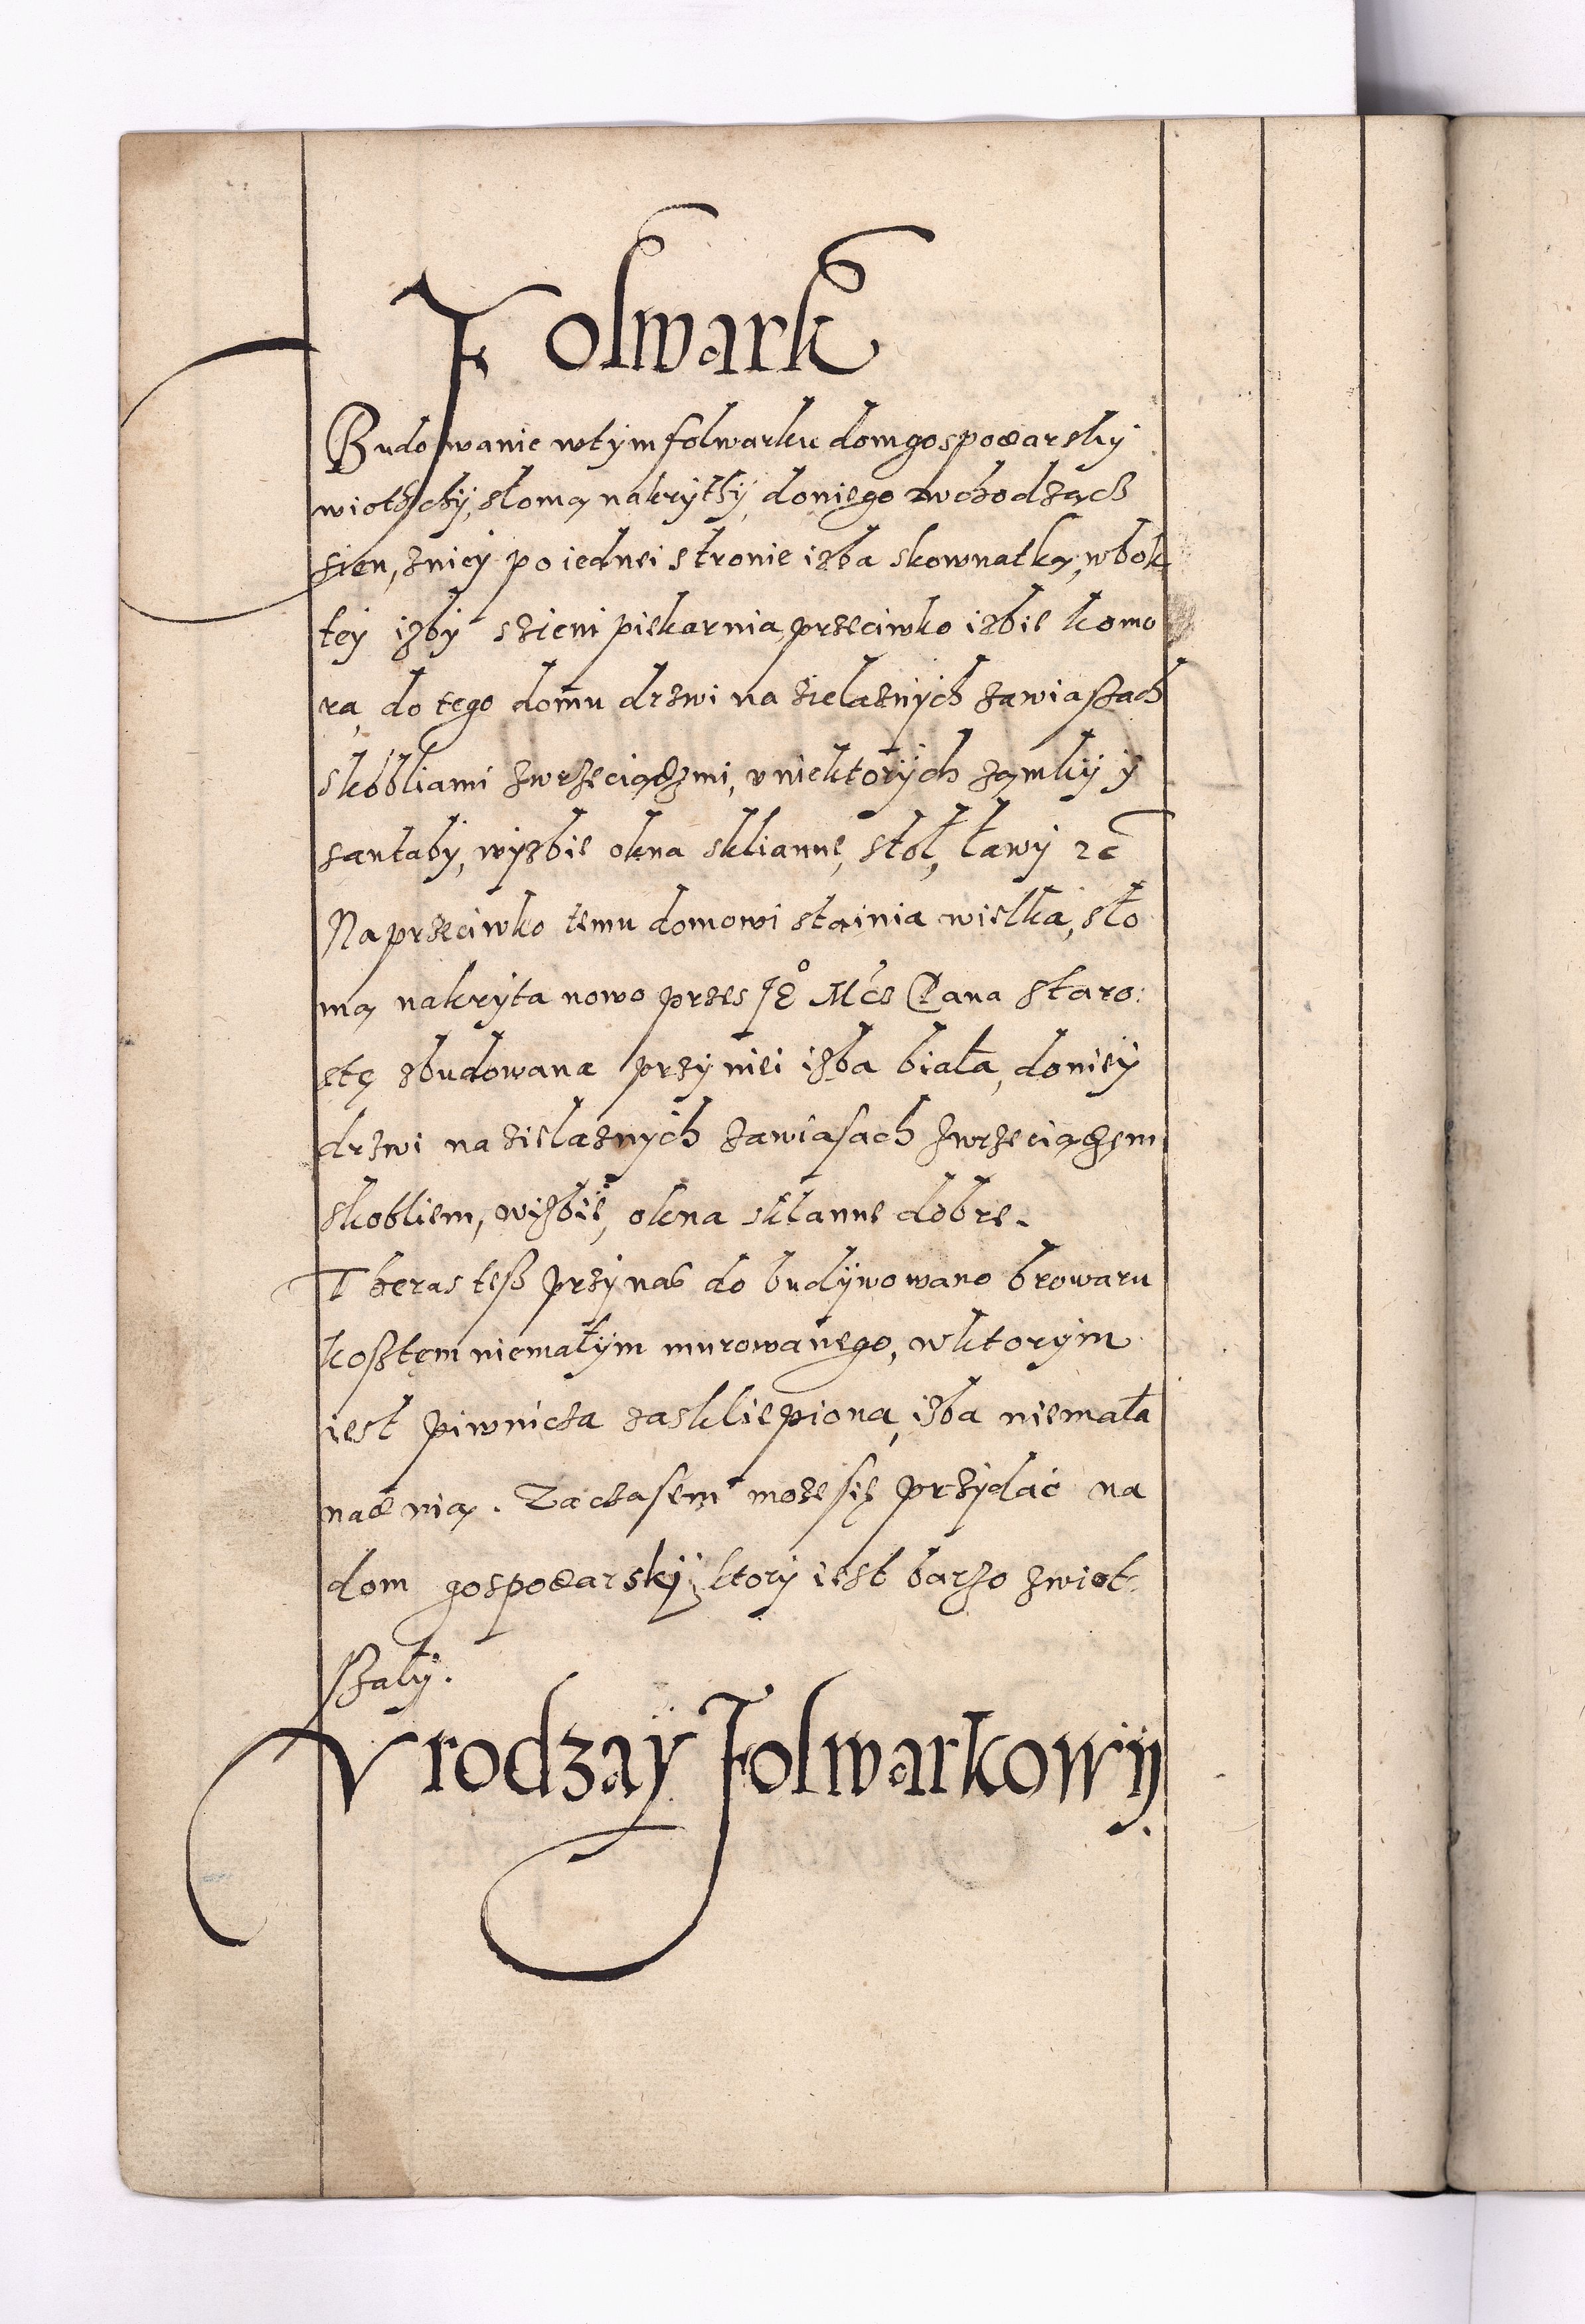 Folwark
Budowanie wtym folwarku dom gospodarsky
wiothchy, słomą nakrythy, do niego wchodząch
sien, zniey po iednei stronie izba skownatką, wbok
tey izby szieni piekarnia, przeciwko izbie komo
ra, do tego domu drzwi na zielaznych zawiaszach
skobliami zwrzeciądzmi, v niektorych zamky y
santaby, wyzbie okna skliannę, stoł, ławy zc
Naprzeciwko temu domowi stainia wielka, sło
mą nakryta nowo przes Jeo Mcz Pana Staro:
stę zbudowana przy niei izba biała, do niey
drzwi na zielaznych zawiasach zwrzeciądzem
skobliem, wizbie, okna skłanne dobre.
Theras tesz przynas do budywowano browaru
kosztem niemałym murowanego, wktorym
iest piwnicza zaskliepiona, izba niemała
nad nią. Zaczasem może się przydać na
dom gospodarsky, ktory iest barzo zwiot
szały.
Vrodzay Folwarkowy